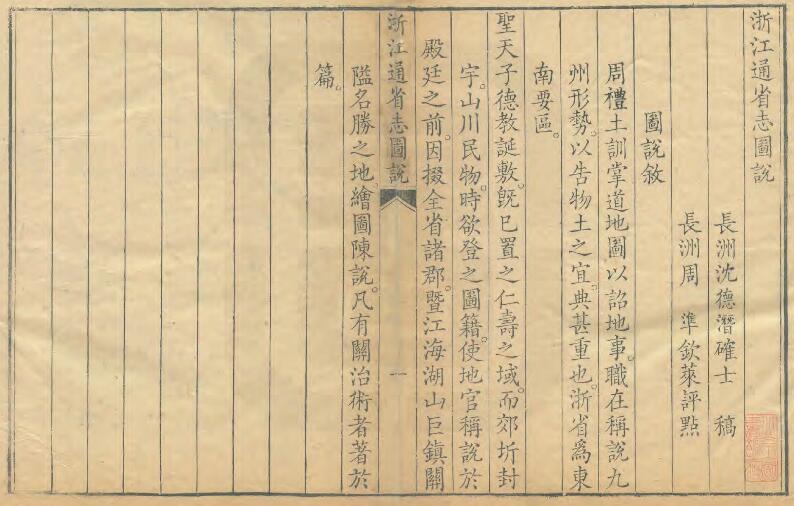 浙江通省志圖說
長洲沈德潛確士　稿
長洲周　準欽萊評點
圖說敘
周禮土訓掌道地圖以詔地事。職在稱說九
州形勢。以告物土之宜。典甚重也。浙省爲東
南要區。
聖天子德教誕敷。旣已置之仁壽之域。而郊圻封
宇。山川民物。時欲登之圖籍。使地官稱說於
殿廷之前。因掇全省諸郡。暨江海湖山巨鎮關
浙江通省志圖說　一
隘名勝之地。繪圖陳說。凡有關治術者著於
篇。